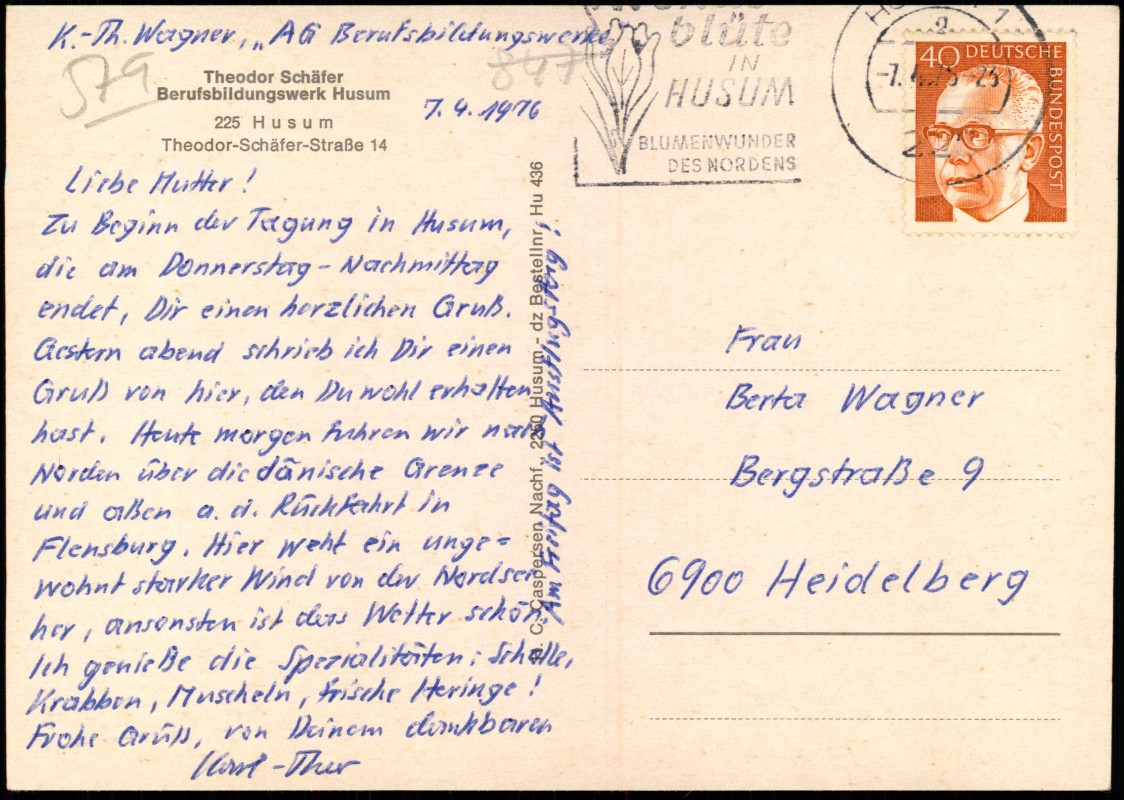 K.-Th. Wagner, „AG Berufsbildungswerke
57a
847
Theodor Schäfer
Berufsbildungswerk Husum
225 Husum
Theodor-Schäfer-Straße 14
7.4.1976
Liebe Mutter!
Zu Beginn der Tagung in Husum,
die am Donnerstag-Nachmittag
endet, Dir einen herzlichen Gruß.
Gestern abend schrieb ich Dir einen
Gruß von hier, den Du wohl erhalten
hast. Heute morgen fuhren wir nach
Norden über die dänische Grenze
und aßen a. d. Rückfahrt in
Flensburg. Hier weht ein unge=
wohnt starker Wind von der Nordsee
her, ansonsten ist das Wetter schön.
Ich genieße die Spezialitäten: Scholle,
Krabben, Muscheln, frische Heringe!
Frohe Grüß, von Deinem dankbaren
Karl-Theo
Am Freitag ist Ausflugstag!
C. Caspersen Nachf., 2250 Husum - dz Bestellnr. Hu 436
blüte
IN
HUSUM
BLUMENWUNDER
DES NORDENS
40 DEUTSCHE
BUNDESPOST
Frau
Berta Wagner
Bergstraße 9
6900 Heidelberg